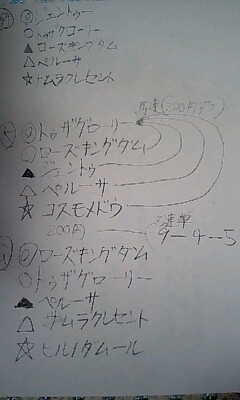 ◎ジェントゥー
○トゥザグローリー
▲ローズキングダム
△ペルーサ
☆ナムラクレセント
馬連(200円ずつ)
◎トゥザグローリー
○ローズキングダム
▲ジェントゥ
△ペルーサ
☆コスモメドウ
200円
三連単
9-4-5
◎ローズキングダム
○トゥザグローリー
▲ペルーサ
△ナムラクレセント
☆ヒルノダムール